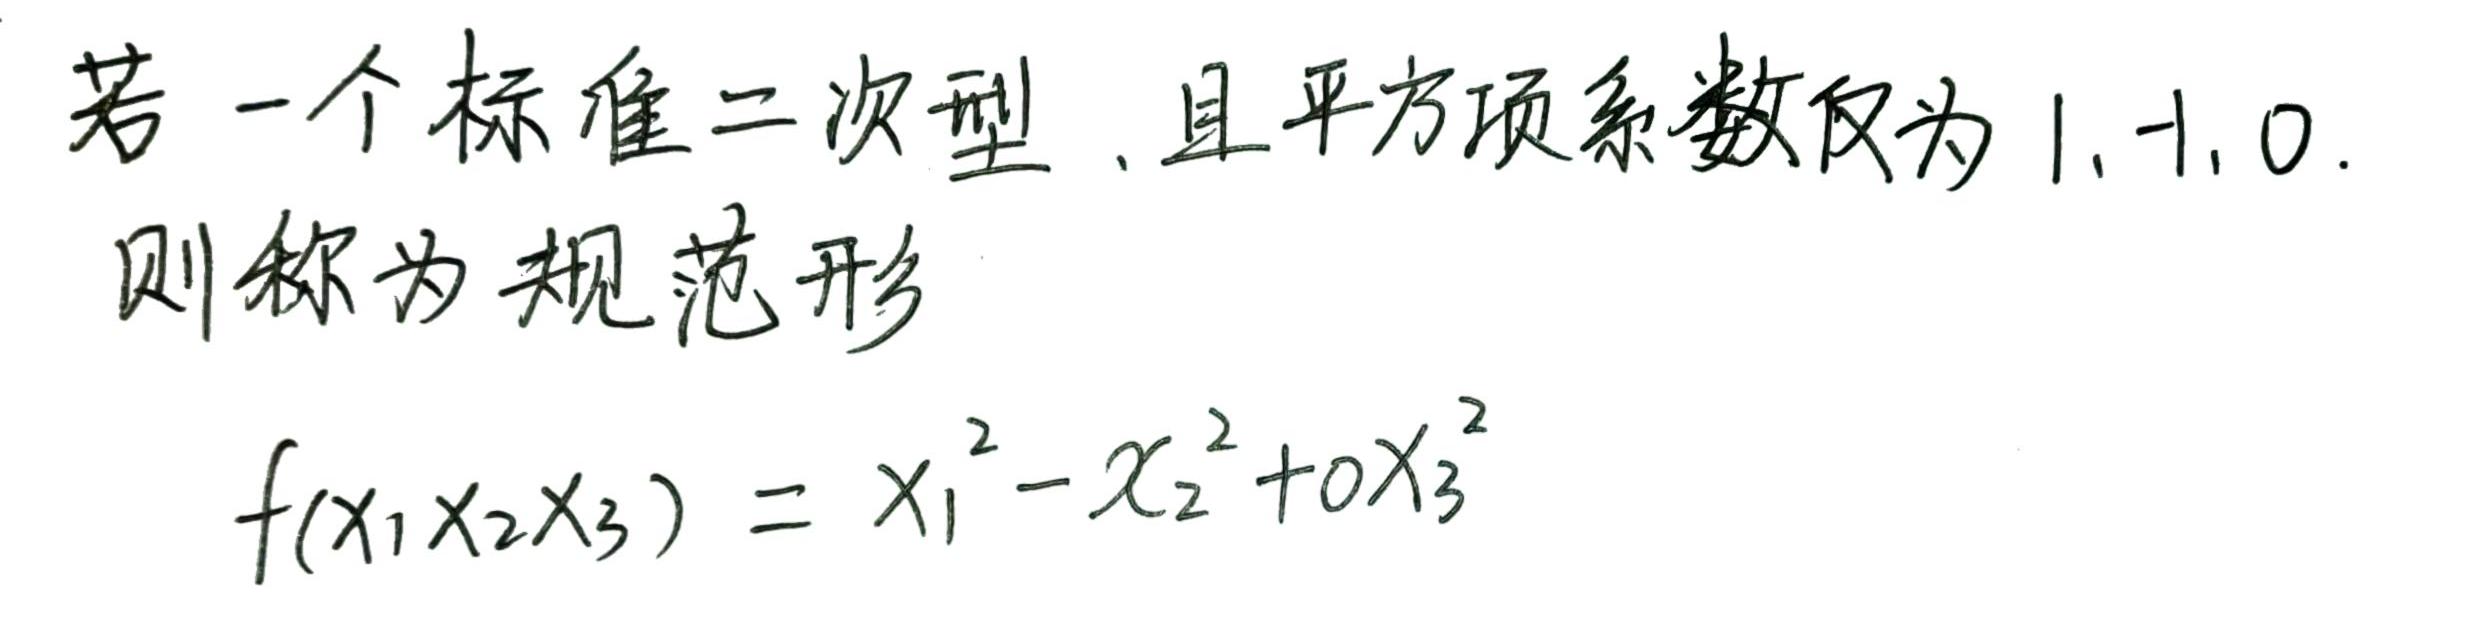 若一个标准二次型、且平方项系数仅为1、-1、0.
则称为规范形
f(x₁x₂x₃) = x₁² - x₂² + 0x₃²